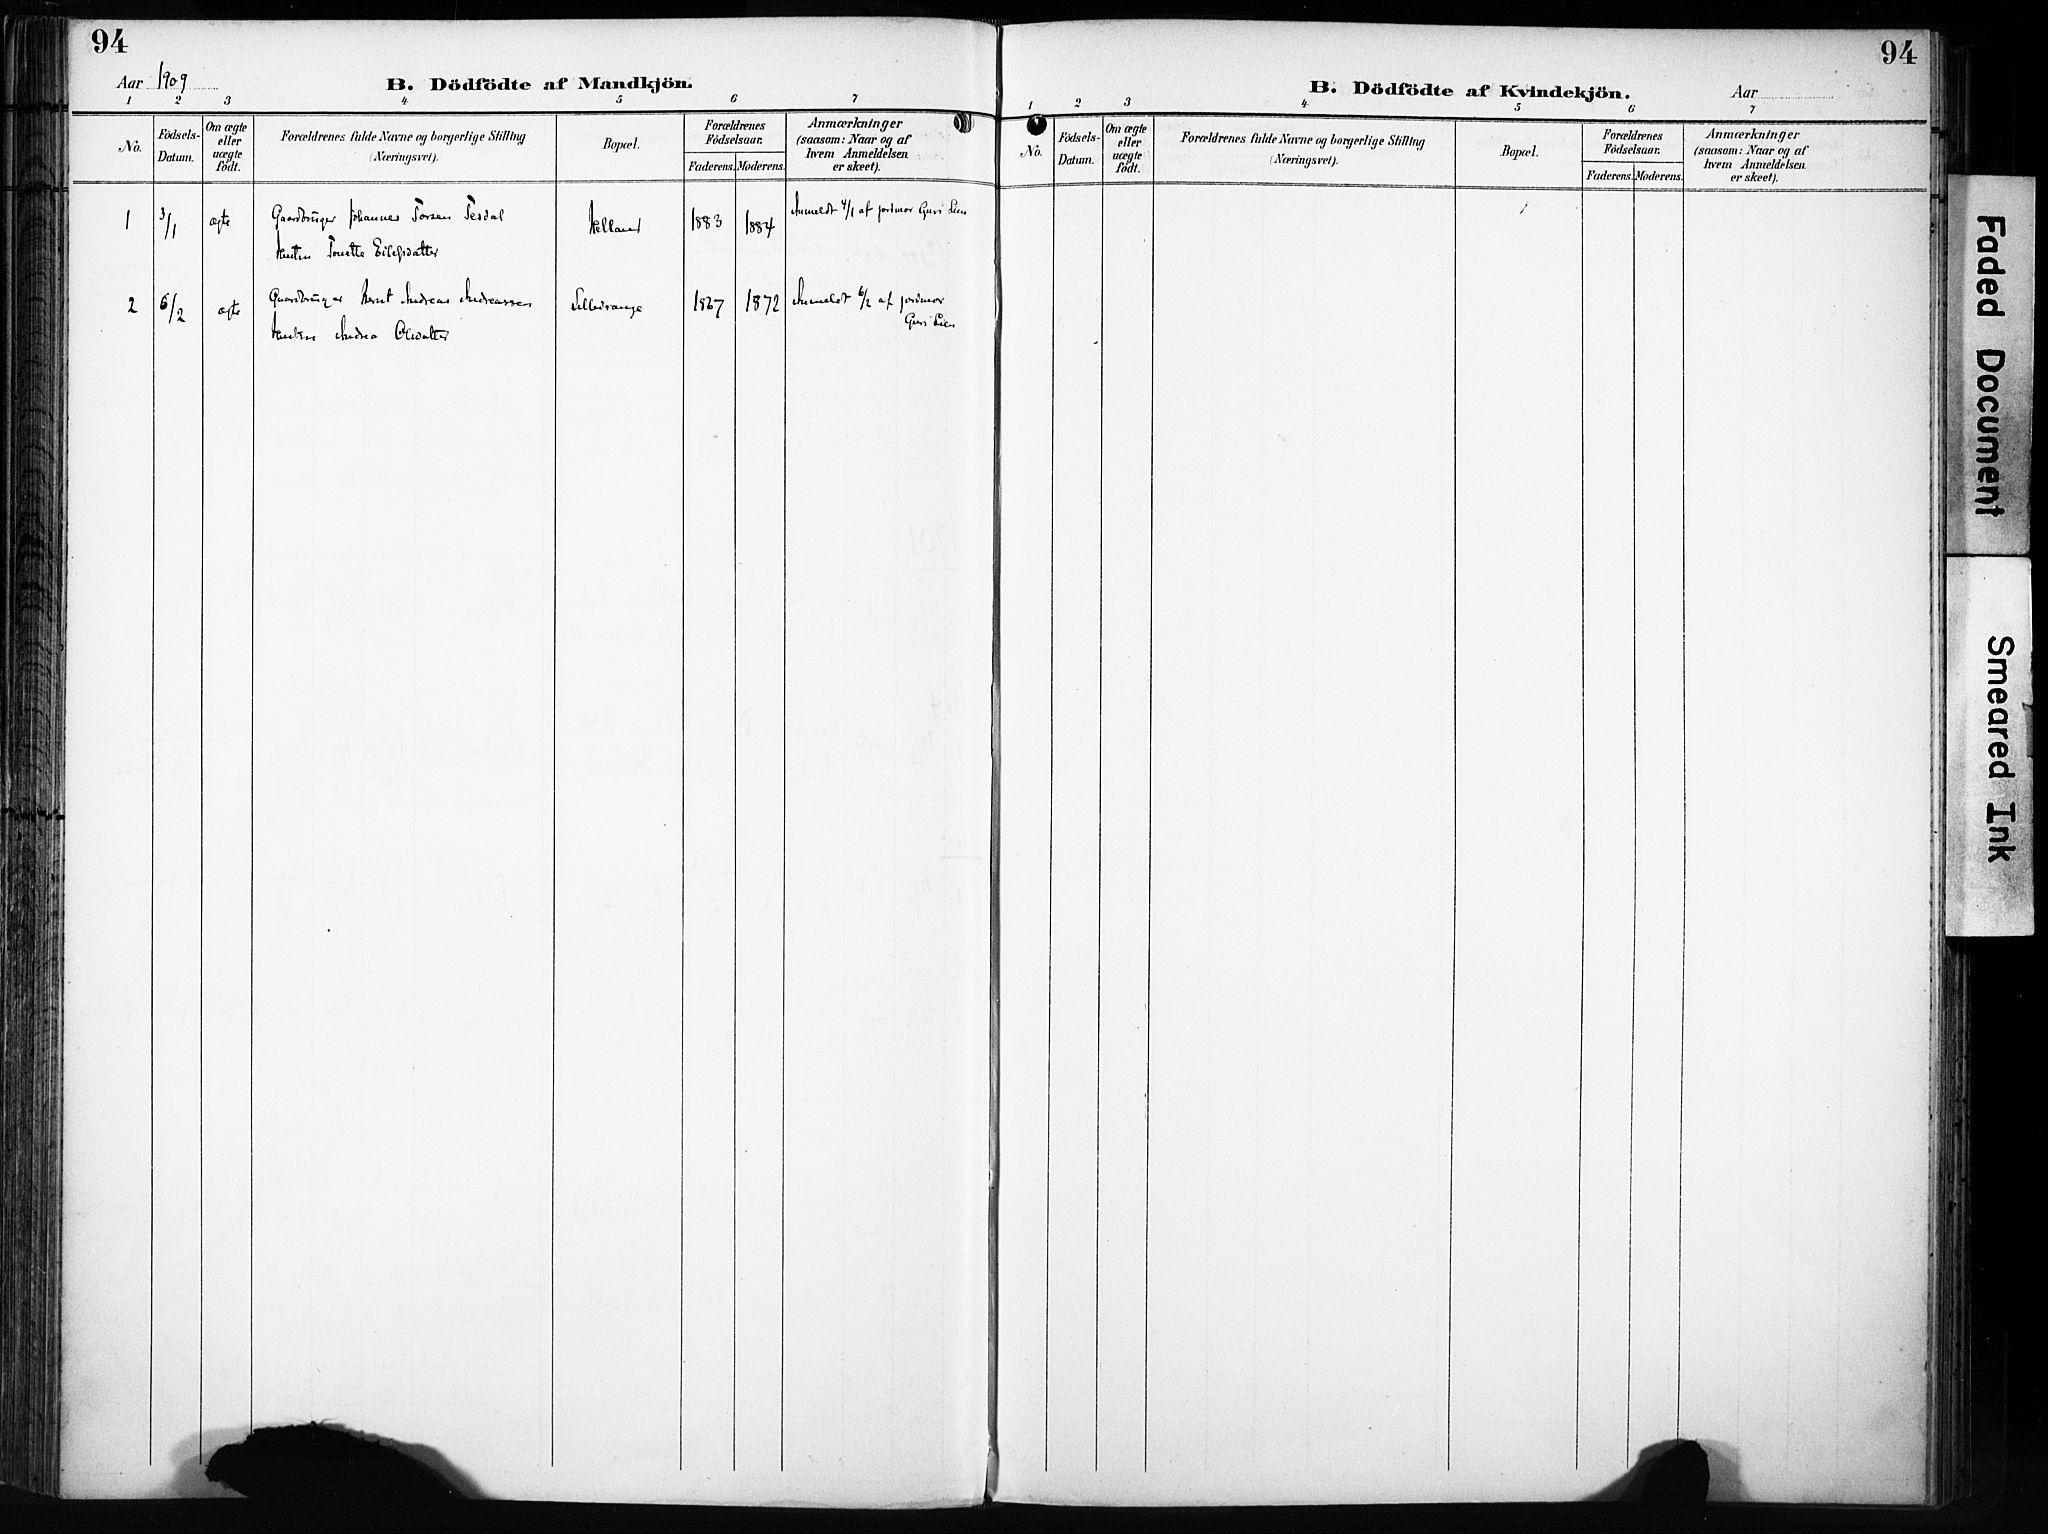 94
Aar 1909
B. Dödfödte af Mandkjön.
1 2 3 4 5 6 7
No.
Födsels-
Datum.
Om ægte
eller
uægte
født.
Forældrenes fulde Navne og borgerlige Stilling
(Næringsvei).
Bopæl.
Forældrenes
Födselsaar.
Faderens. Moderens.
Anmærkninger
(saasom: Naar og af
hvem Anmeldelsen
er skeet).
1 3/1 ægte Gaardbruger Johannes Torsen Tesdal Helland 1883 1884 Anmeldt 4/1 af jordmor Guri Lien
Hustru Tonette Eilefsdatter
2 6/2 ægte Gaardbruger Bernt Andreas Andreassen 1867 1872 Anmeldt 6/2 af jordmor
Guri Lien
Hustru Andrea Olsdatter
94
B. Dödfödte af Kvindekjön.
Aar
1 2 3 4 5 6 7
No.
Födsels-
Datum.
Om ægte
eller
uægte
födt.
Forældrenes fulde Navne og borgerlige Stilling
(Næringsvei).
Bopæl.
Forældrenes
Födselsaar.
Faderens. Moderens.
Anmærkninger
(saasom: Naar og af
hvem Anmeldelsen
er skeet).
Faded Document
Smeared Ink